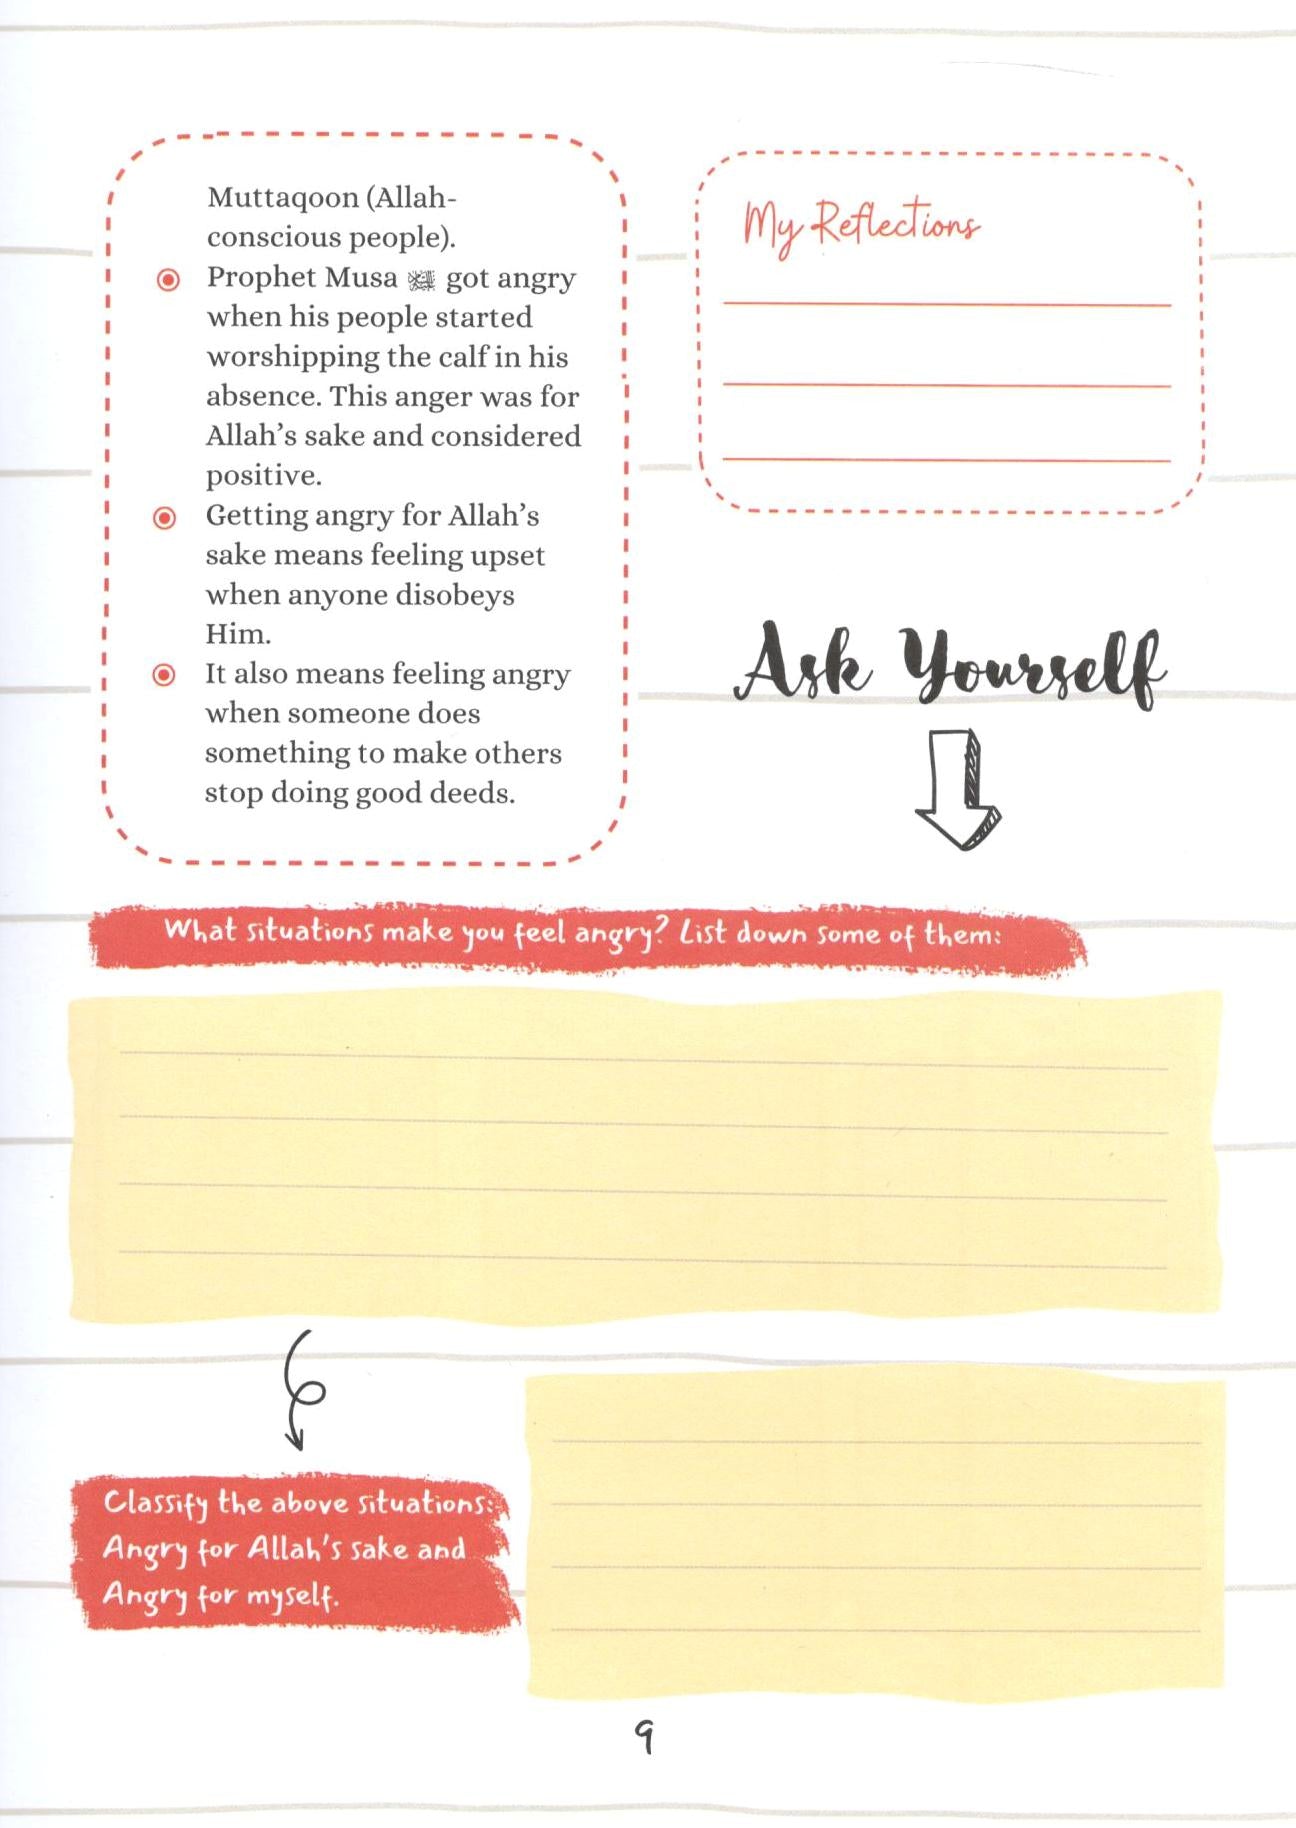 Muttaqoon (Allah-
conscious people).
Prophet Musa got angry
when his people started
worshipping the calf in his
absence. This anger was for
Allah's sake and considered
positive.
Getting angry for Allah's
sake means feeling upset
when anyone disobeys
Him.
It also means feeling angry
when someone does
something to make others
stop doing good deeds.
My Reflections
Ask Yourself
What situations make you feel angry? List down some of them:
Classify the above situations:
Angry for Allah's sake and
Angry for myself.
9